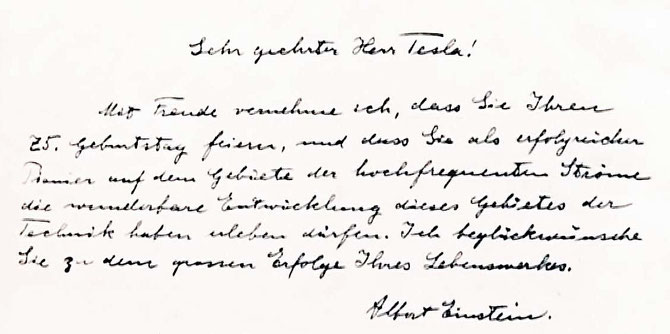 Sehr geehrter Herr Tesla!
Mit Freude vernehme ich, dass Sie Ihren
75. Geburtstag feiern, und dass Sie als erfolgreicher
Pionier auf dem Gebiete der hochfrequenten Ströme
die wunderbare Entwicklung dieses Gebietes der
Technik haben erleben dürfen. Ich beglückwünsche
Sie zu dem grossen Erfolge Ihres Lebenswerkes.
Albert Einstein.